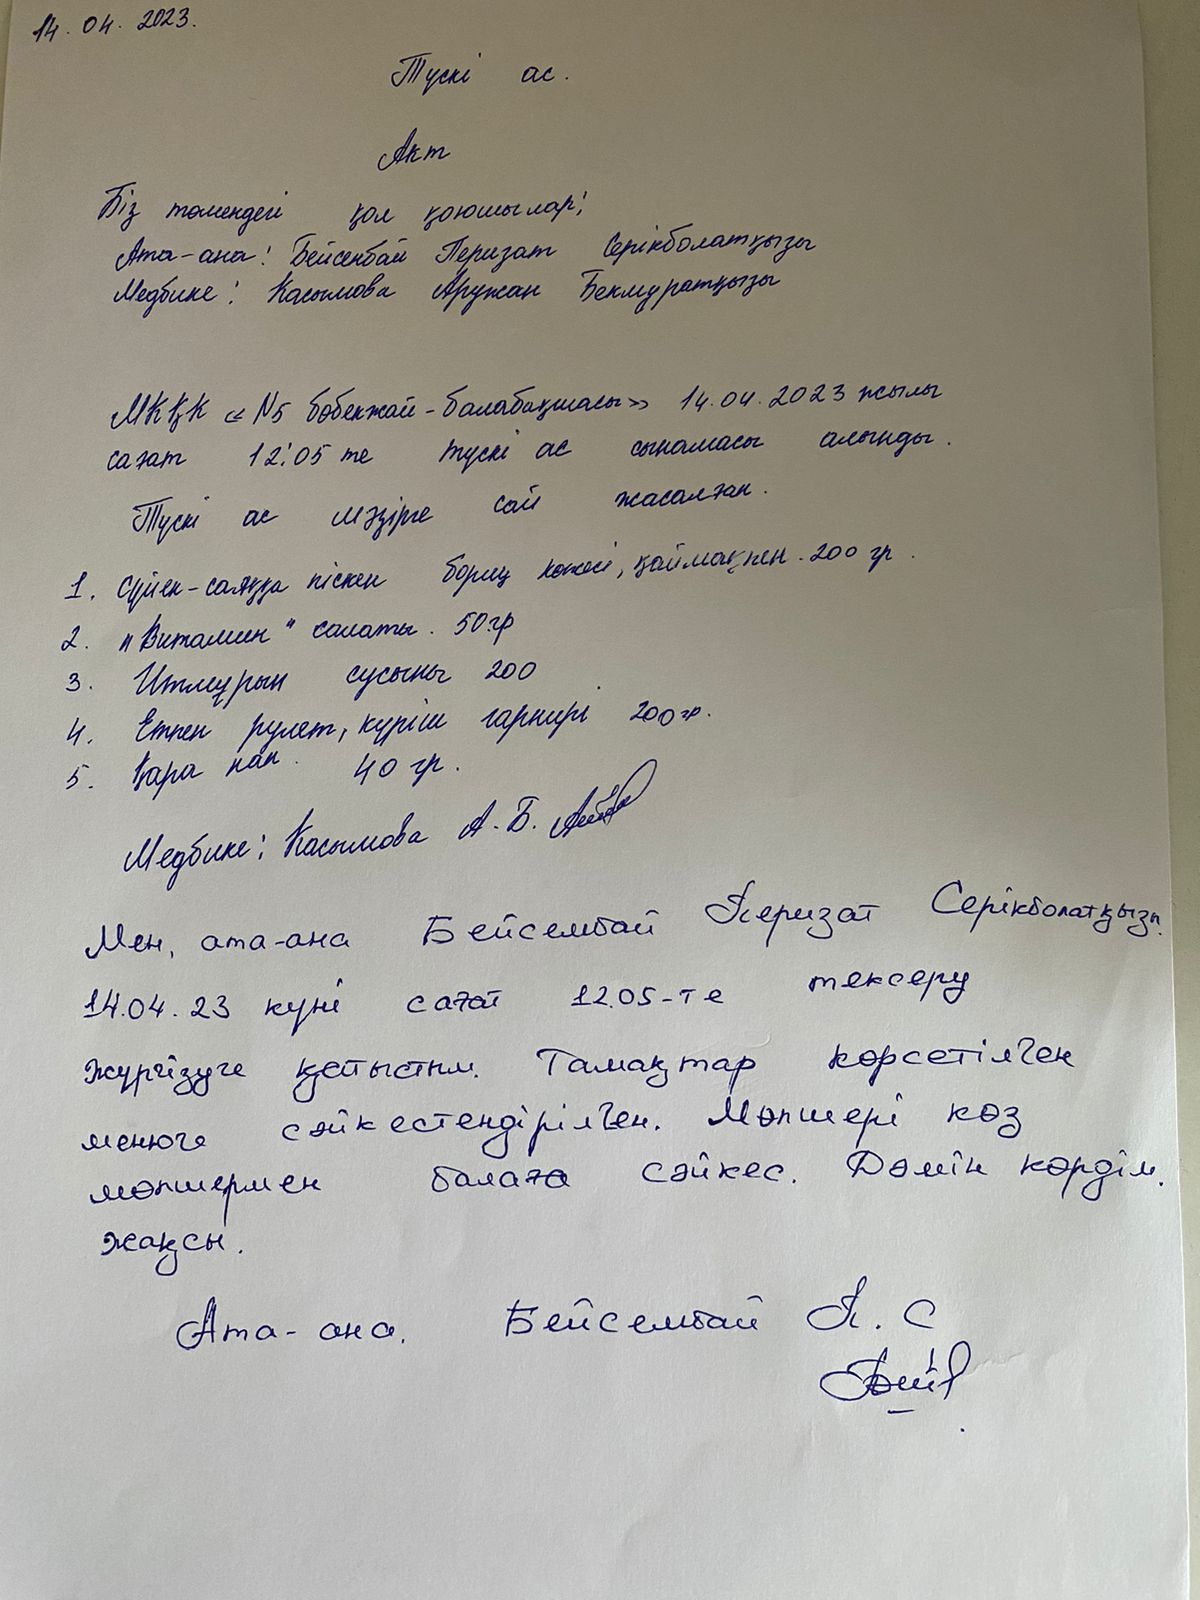 14. 04. 2023.
Түскі ас.
Акт
Біз төмендегі қол қоюшылар;
Ата-ана: Бейсенбай Перизат Серікболатқызы
Медбике: Касымова Аружан Бекмуратқызы
МКҚК «N5 бөбекжай-балабақшасы» 14.04.2023 жылы
сағат 12:05 те түскі ас сынамасы алынды.
Түскі ас мәзірге сай жасалған.
1. Сүйек-саяққа піскен борщ көжесі, қаймақпен. 200 гр.
2. "Витамин" салаты. 50гр
3. Итмұрын сусыны 200
4. Етпен рулет, күріш гарнирі 200гр.
5. Қара нан. 40 гр.
Медбике: Касымова А.Б.
Мен, ата-ана Бейсембай Перизат Серікболатқызы.
14.04.23 күні сағат 12.05-те тексеру
жүргізуге қатыстым. Тамақтар көрсетілген
менюге сәйкестендірілген. Мөлшері көз
мөлшермен балаға сәйкес. Дәмін көрдім.
жақсы.
Ата-ана. Бейсембай П. С